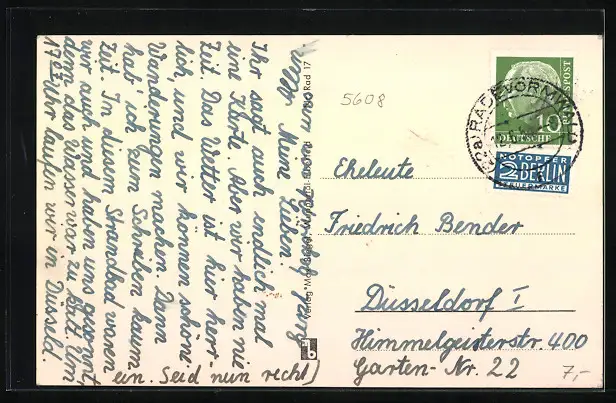 Meine Lieben.
Ihr sagt auch endlich mal
eine Karte. Aber wir haben nie
Zeit. Das Wetter ist hier herr-
lich, und wir können schöne
Wanderungen machen. Dann
hab ich zum Schreiben kaum
Zeit. In diesem Strandbad waren
wir auch und haben uns gesonnt,
denn das Wasser war zu kalt. Um
17 07 Uhr laufen wir in Düsseld.
ein. Seid nun recht
Rad 17
5608
Eheleute
Friedrich Bender
Düsseldorf I
Himmelgeisterstr. 400
Garten-Nr. 22
7,-
RADEVORMWALD
10
DEUTSCHE
BUNDESPOST
NOTOPFER
2 BERLIN
STEUERMARKE